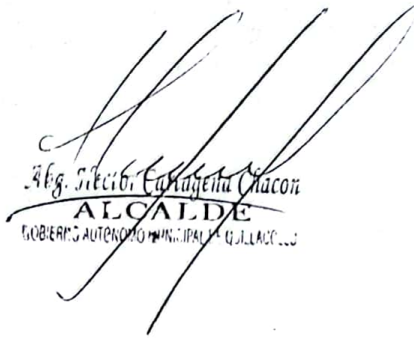 Abg. Héctor Cartagena Chacon
ALCALDE
GOBIERNO AUTONOMO MUNICIPAL DE QUILLACOLLO